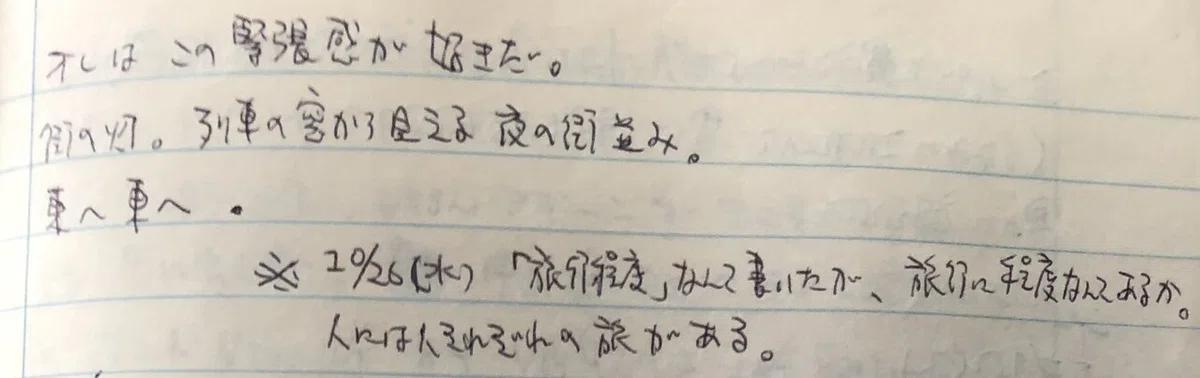 オレはこの緊張感が好きだ。
街の灯。列車の窓から見える夜の街並み。
東へ東へ。
※ 10/26(水)「旅行程度」なんて書いたが、旅行に程度なんてあるか。
人には人それぞれの旅がある。